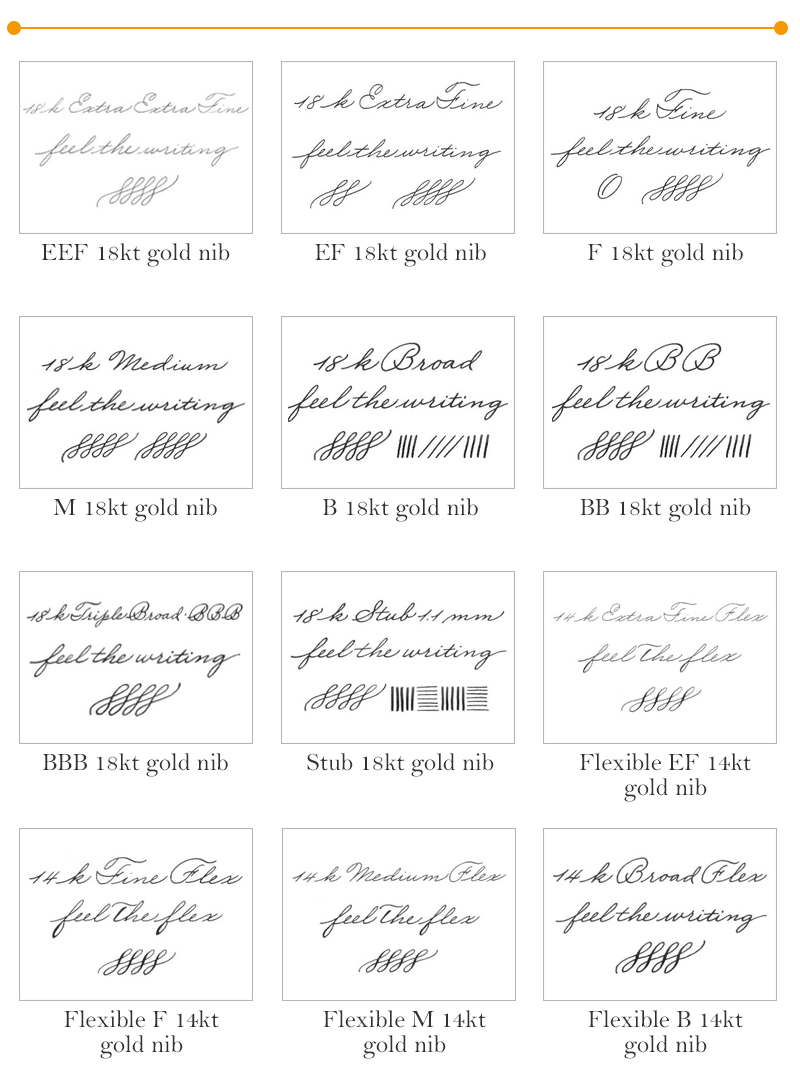 18 k Extra Extra Fine
feel the writing
EEF 18kt gold nib
18 k Extra Fine
feel the writing
EF 18kt gold nib
18 k Fine
feel the writing
O
F 18kt gold nib
18 k Medium
feel the writing
M 18kt gold nib
18 k Broad
feel the writing
B 18kt gold nib
18 k BB
feel the writing
BB 18kt gold nib
18 k Triple Broad · BBB
feel the writing
BBB 18kt gold nib
18 k Stub 1.1 mm
feel the writing
Stub 18kt gold nib
14 k Extra Fine Flex
feel The flex
Flexible EF 14kt
gold nib
14 k Fine Flex
feel The flex
Flexible F 14kt
gold nib
14 k Medium Flex
feel The flex
Flexible M 14kt
gold nib
14 k Broad Flex
feel the writing
Flexible B 14kt
gold nib